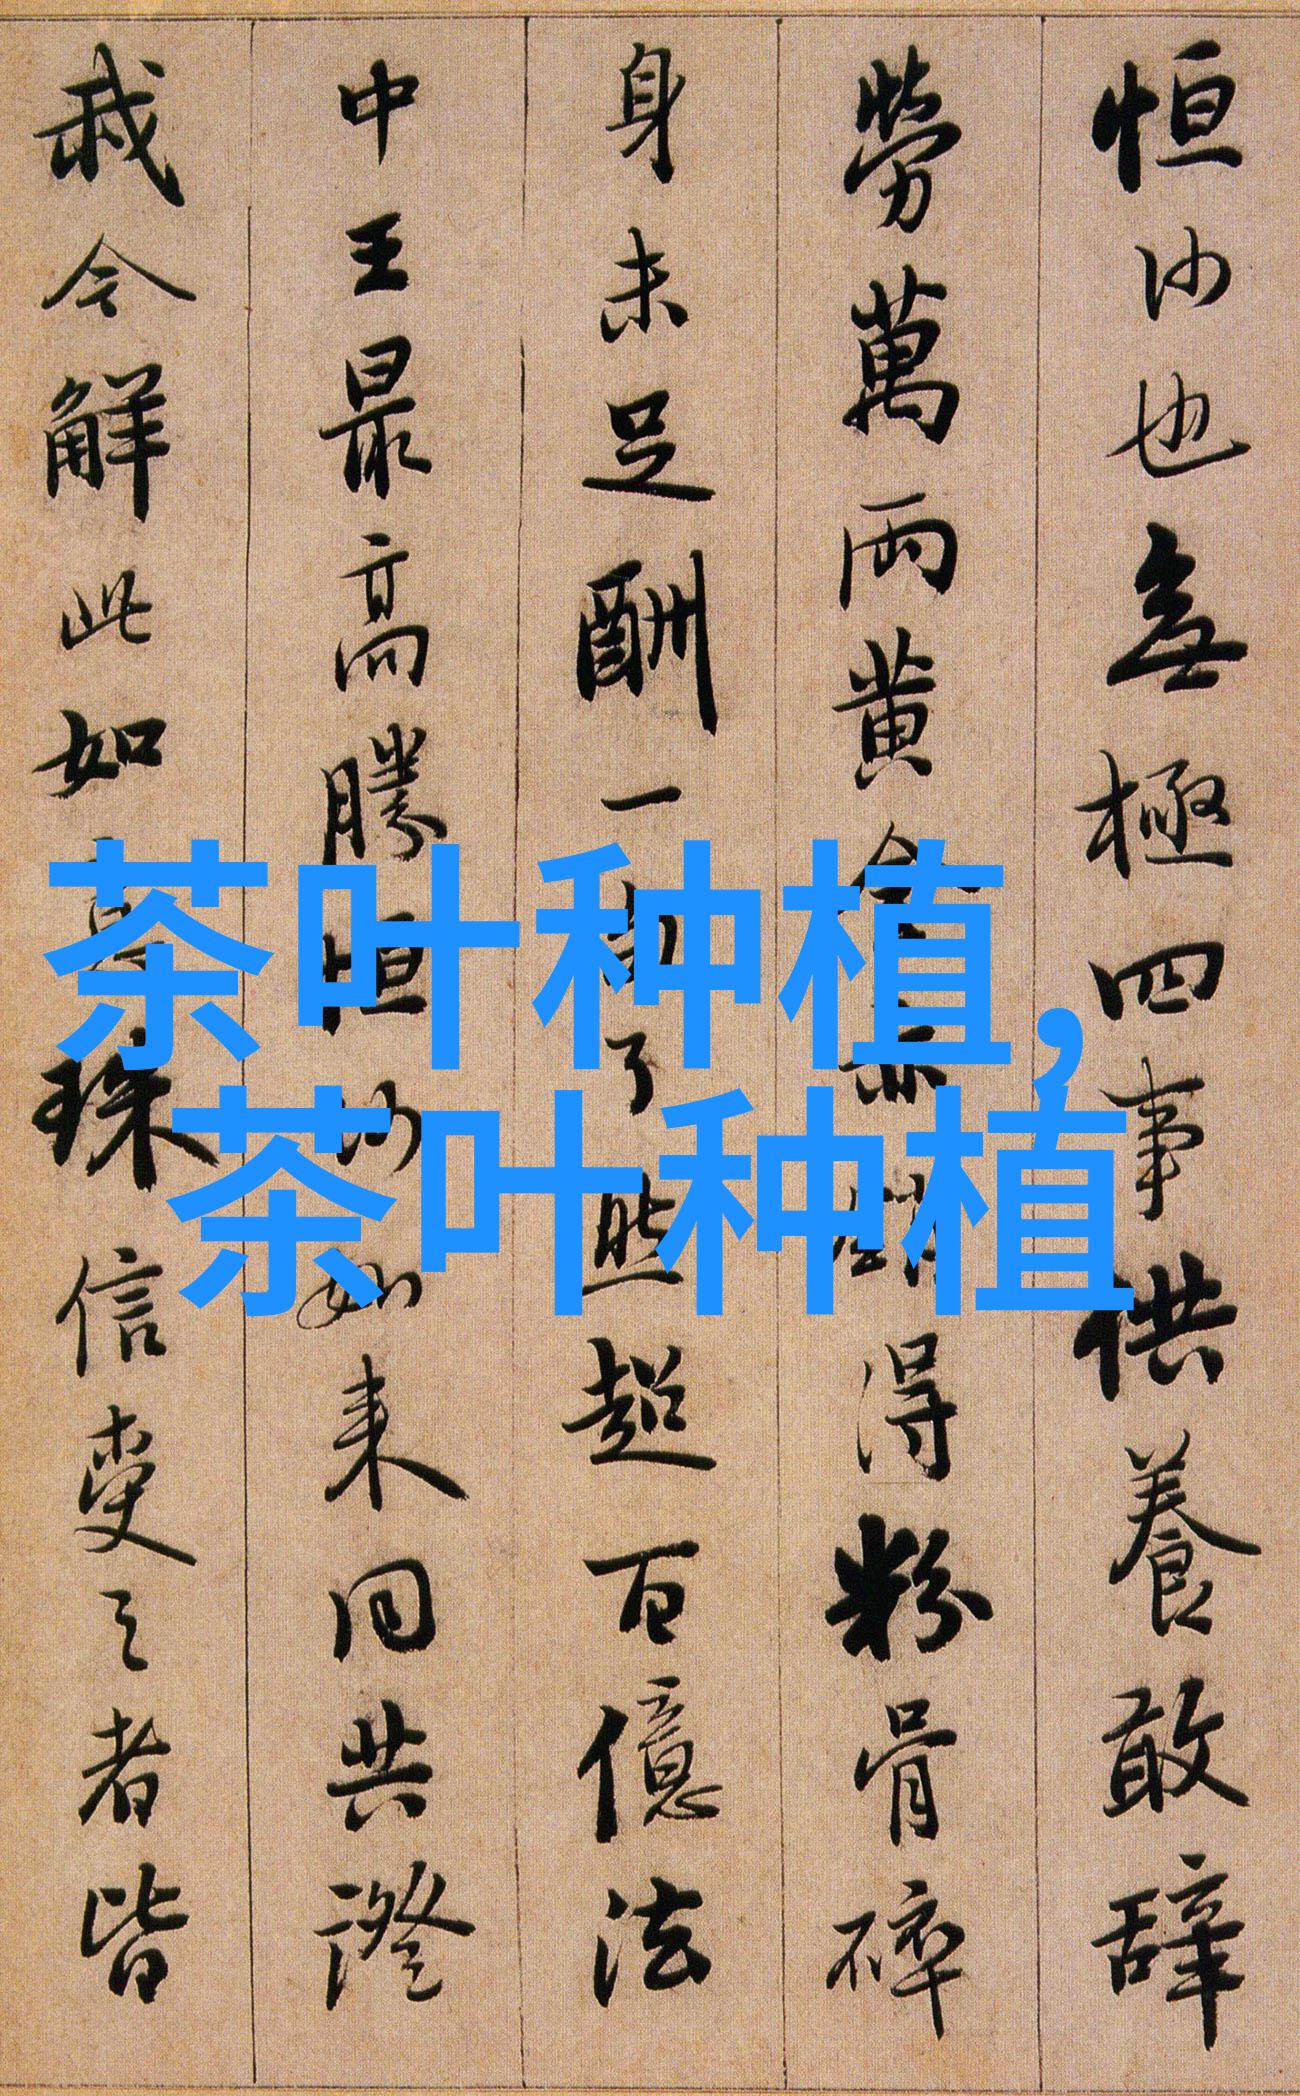 恒沙也無極四事供養敢辭
勞萬兩黃金亦銷得粉骨碎
身未足酬一句了然超百億法
中王最高勝恒沙如来同共證
我今解此如意珠信受之者皆
茶叶种植,
茶叶种植